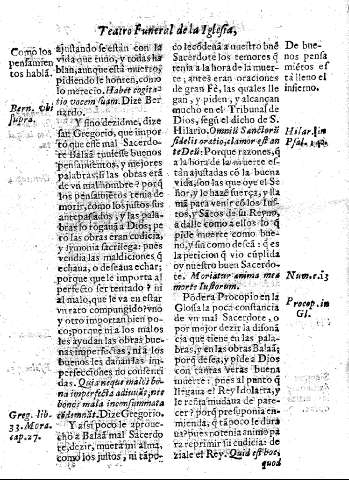 Teatro Funeral de la Iglesia,
Como los
pensamien
tos hablã.
Bern. vbi
supra.
Greg. lib.
33. Mora.
cap. 27.
ajustando se estàn con la
vida que tuuo, y todas ha
blan, aunque està muerto,
pidiendo le honren, como
lo merecio. Habet cogita
tio vocem suam. Dize Ber
nardo.
Y sino dezidme, dize
san Gregorio, que impor
tò que este mal Sacerdo-
te Balaã tuuiesse buenos
pensamiẽtos, y mejores
palabras; si las obras erã
de vn mal hombre? porq̃
los pensamiẽtos eran de
morir, como los justos sus
antepasados, y las pala-
bras lo rogauã a Dios; pe
ro las obras eran cudicia,
y simonia sacrilega: pues
vendia las maldiciones q̃
echaua, o dexaua echar;
porque que le importa al
perfecto ser tentado? ni
al malo, que le va en estar
vn rato compungido, vno
y otro importan bien po-
co; porque ni a los malos
les ayudan las obras bue-
nas imperfectas, ni a los
buenos les dañan las im-
perfecciones no consenti
das. Quia neque malos bo
na imperfecta adiuuãt, nec
bonos mala inconsummata
cõdemnãt. Dize Gregorio.
Y assi poco le aproue-
chò a Balaã mal Sacerdo
te, dezir, muera mi alma,
como los justos, ni tãpo-
co le cõdena a nuestro buẽ
Sacerdote los temores q̃
tenia a la hora de la muer
te; antes eran oraciones
de gran Fè, las quales lle
gan, y piden, y alcançan
mucho en el Tribunal de
Dios, segũ el dicho de S.
Hilario. Omniũ Sanctorũ
fidelis oratio, clamor est an
te Deũ: Porque razones, q̃
a la hora de la muerte es-
tàn ajustadas cõ la buena
vida, son las que oye el Se
ñor, y le hazẽ fuerça, y lla
ma para venir cõ los Jus-
tos, y Sãtos de su Reyno,
a dalle como a ellos lo q̃
pide muerte como bue-
no, y sin como descã: q̃ es
la peticion q̃ vio cũplida
oy nuestro buen Sacerdo-
te. Moriatur anima mea
morte Iustorum.
Põdera Procopio en la
Glosa la poca constancia
de vn mal Sacerdote, o
por mejor dezir la disonã
cia que tiene en las pala-
bras, y en las obras Balaã;
porq̃ desea, y pide a Dios
con tantas veras buena
muerte: pues al punto q̃
llegaua el Rey Idolatra, y
le reñia mudaua de pare-
cer? porq̃ presuponia en-
mienda, q̃ tãpoco le dura
ua? pues no tenia animo pa
ra reprimir su cudicia: de
ziale el Rey. Quid est hoc,
quod
De bue-
nos pensa
miẽtos es
tà lleno el
infierno.
Hilar. in
Psal. 140.
Num. c. 23
Procop. in
Gl.